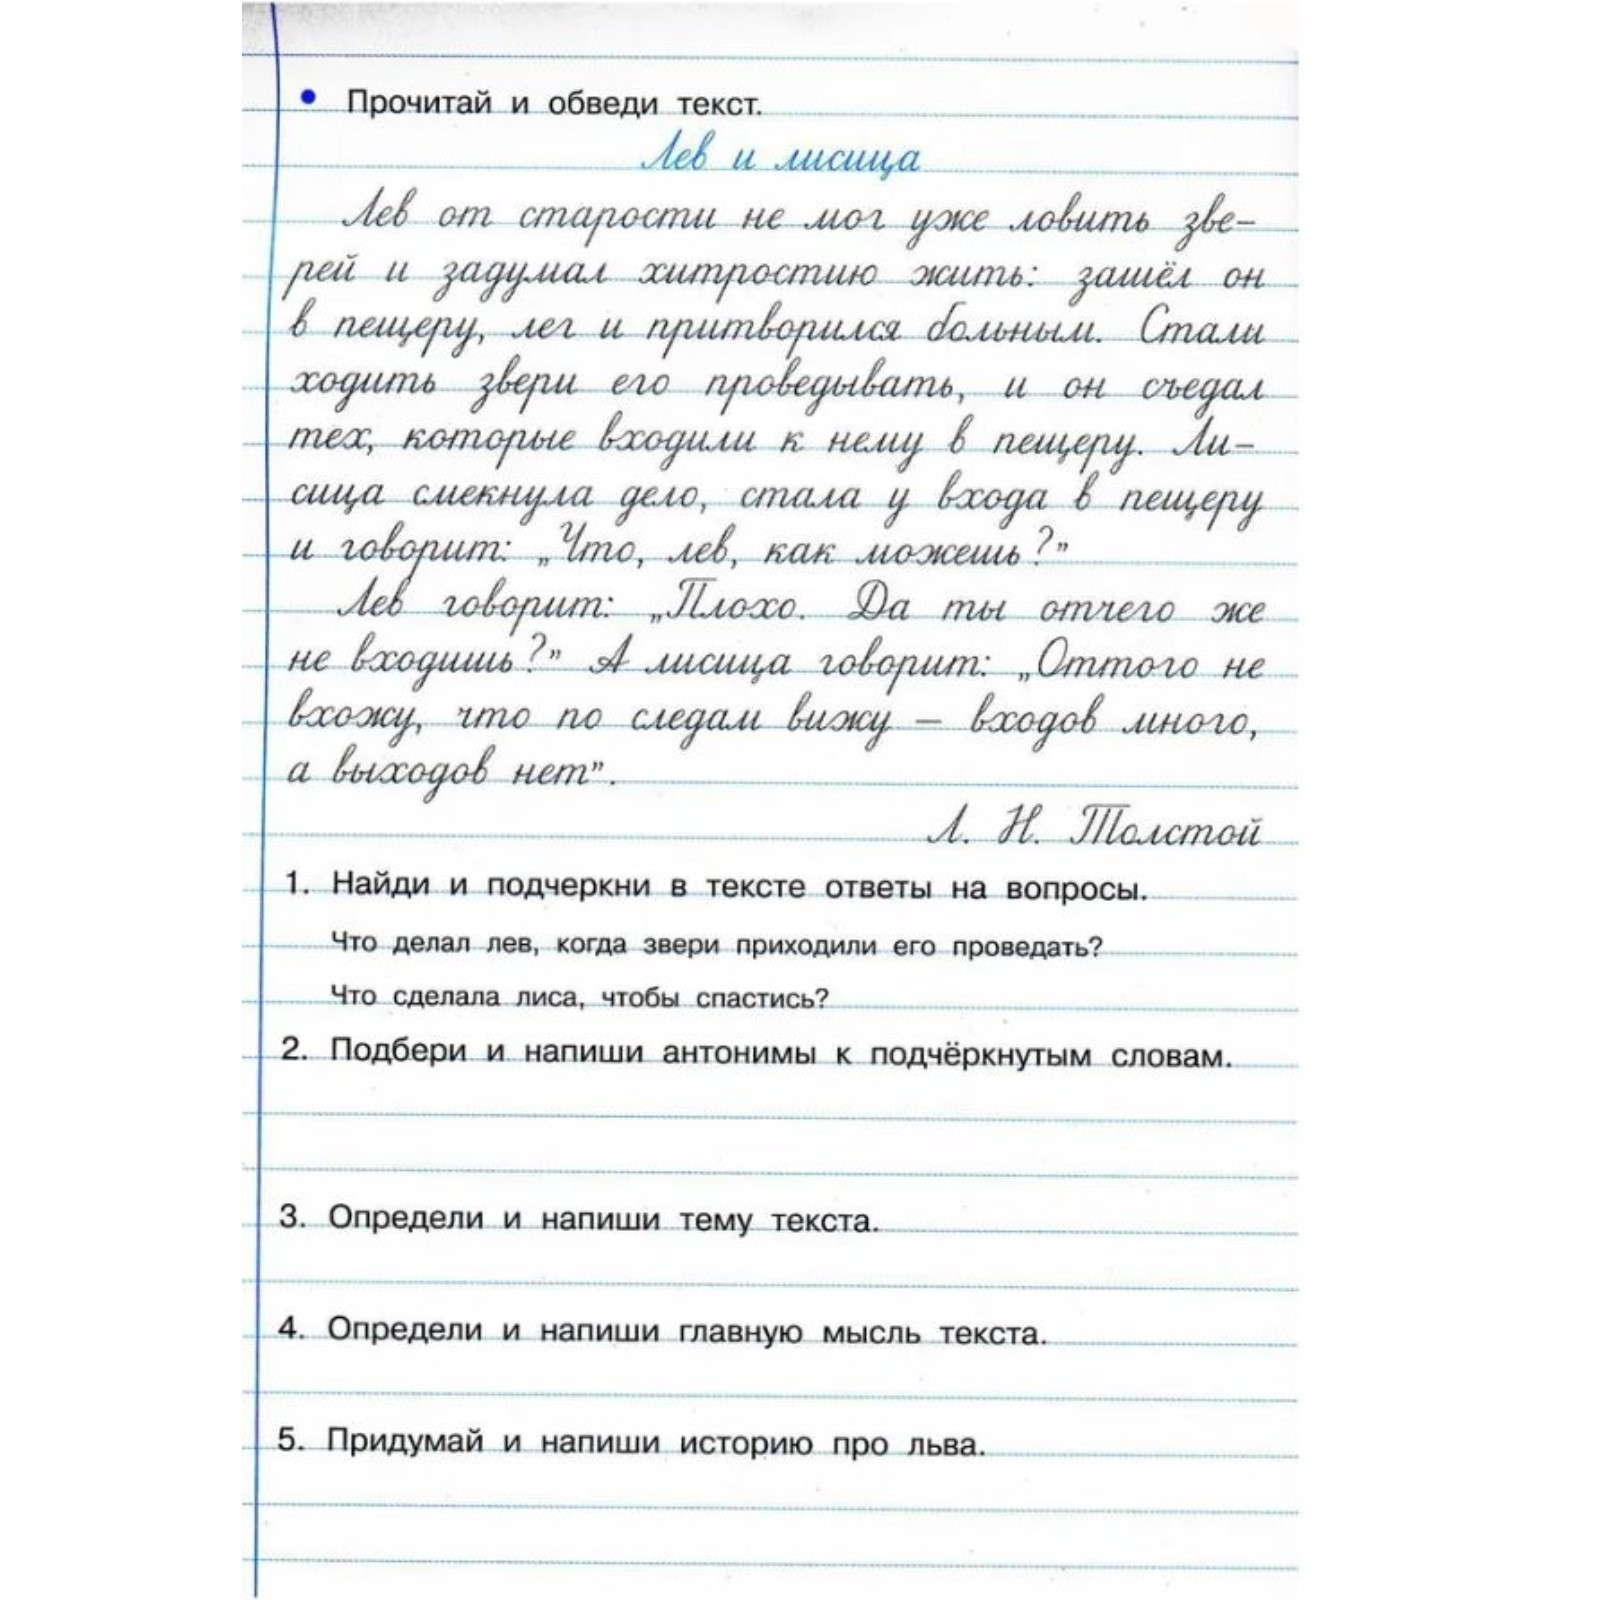 • Прочитай и обведи текст.
Лев и лисица
Лев от старости не мог уже ловить зве-
рей и задумал хитростию жить: зашёл он
в пещеру, лег и притворился больным. Стали
ходить звери его проведывать, и он съедал
тех, которые входили к нему в пещеру. Ли-
сица смекнула дело, стала у входа в пещеру
и говорит: „Что, лев, как можешь?”
Лев говорит: „Плохо. Да ты отчего же
не входишь?” А лисица говорит: „Оттого не
вхожу, что по следам вижу – входов много,
а выходов нет”.
Л. Н. Толстой
1. Найди и подчеркни в тексте ответы на вопросы.
Что делал лев, когда звери приходили его проведать?
Что сделала лиса, чтобы спастись?
2. Подбери и напиши антонимы к подчёркнутым словам.
3. Определи и напиши тему текста.
4. Определи и напиши главную мысль текста.
5. Придумай и напиши историю про льва.